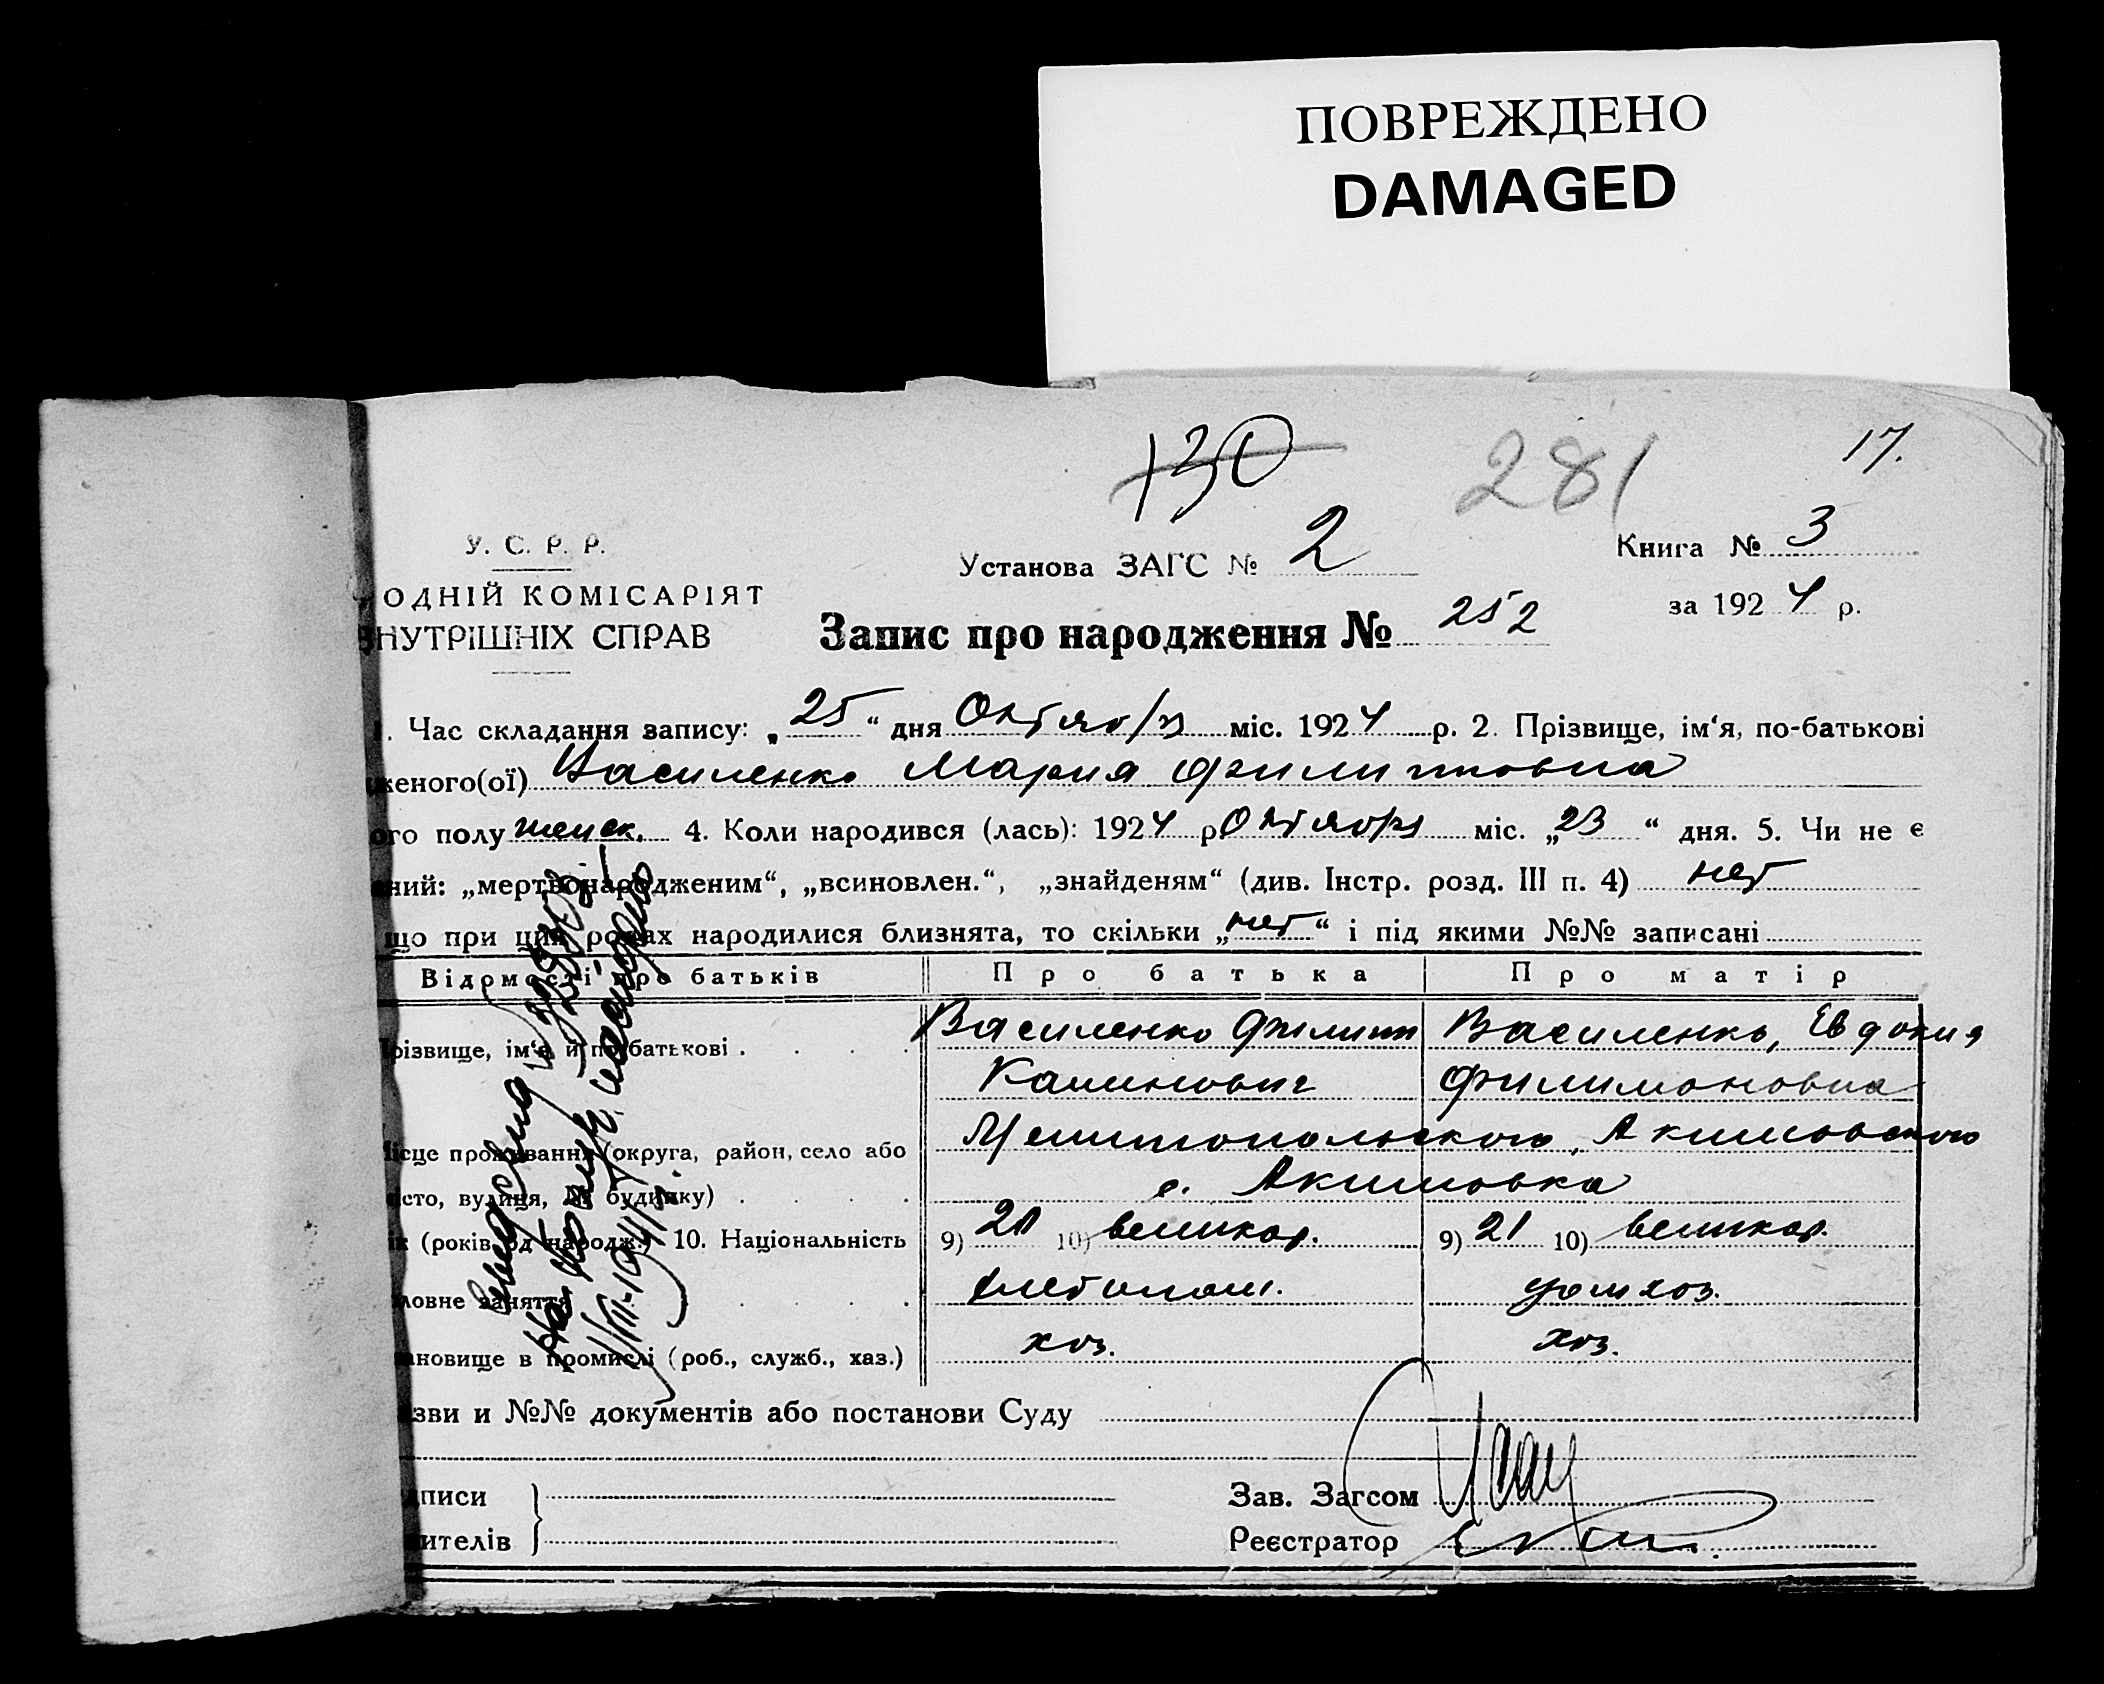 ПОВРЕЖДЕНО
DAMAGED
130
281
17.
У. С. Р. Р.
ОДНІЙ КОМІСАРІЯТ
ВНУТРІШНІХ СПРАВ
Установа ЗАГС № 2
Книга № 3
за 1924 р.
Запис про народження № 252
1. Час складання запису: „25“ дня Октября міс. 1924 р. 2. Прізвище, ім‘я, по-батькові
женого(ої) Василенко Мария Филипповна
ого полу женск. 4. Коли народився (лась): 1924 р Октября міс. „23“ дня. 5. Чи не є
аний: „мертвонародженим“, „всиновлен.“, „знайденям“ (див. Інстр. розд. III п. 4) нет
що при цих родах народилися близнята, то скільки „нет“ і під якими №№ записані
Відомості про батьків Про батька Про матір
різвище, ім‘я й по батькові . . . . Василенко Филипп Василенко, Евдокия
Филимоновна
ісце проживання (округа, район, село або Мелитопольского, Акимовского
істо, вулиця, № будинку) . . . . с. Акимовка
ік (років од народж.) 10. Національність 9) 10) великор. 9) 21 10) великор.
ловне заняття . . . . хлебопаш. дом хоз.
ановище в промислі (роб., служб., хаз.) хоз. хоз.
азви и №№ документів або постанови Суду
дписи
ителів
Зав. Загсом
Реєстратор